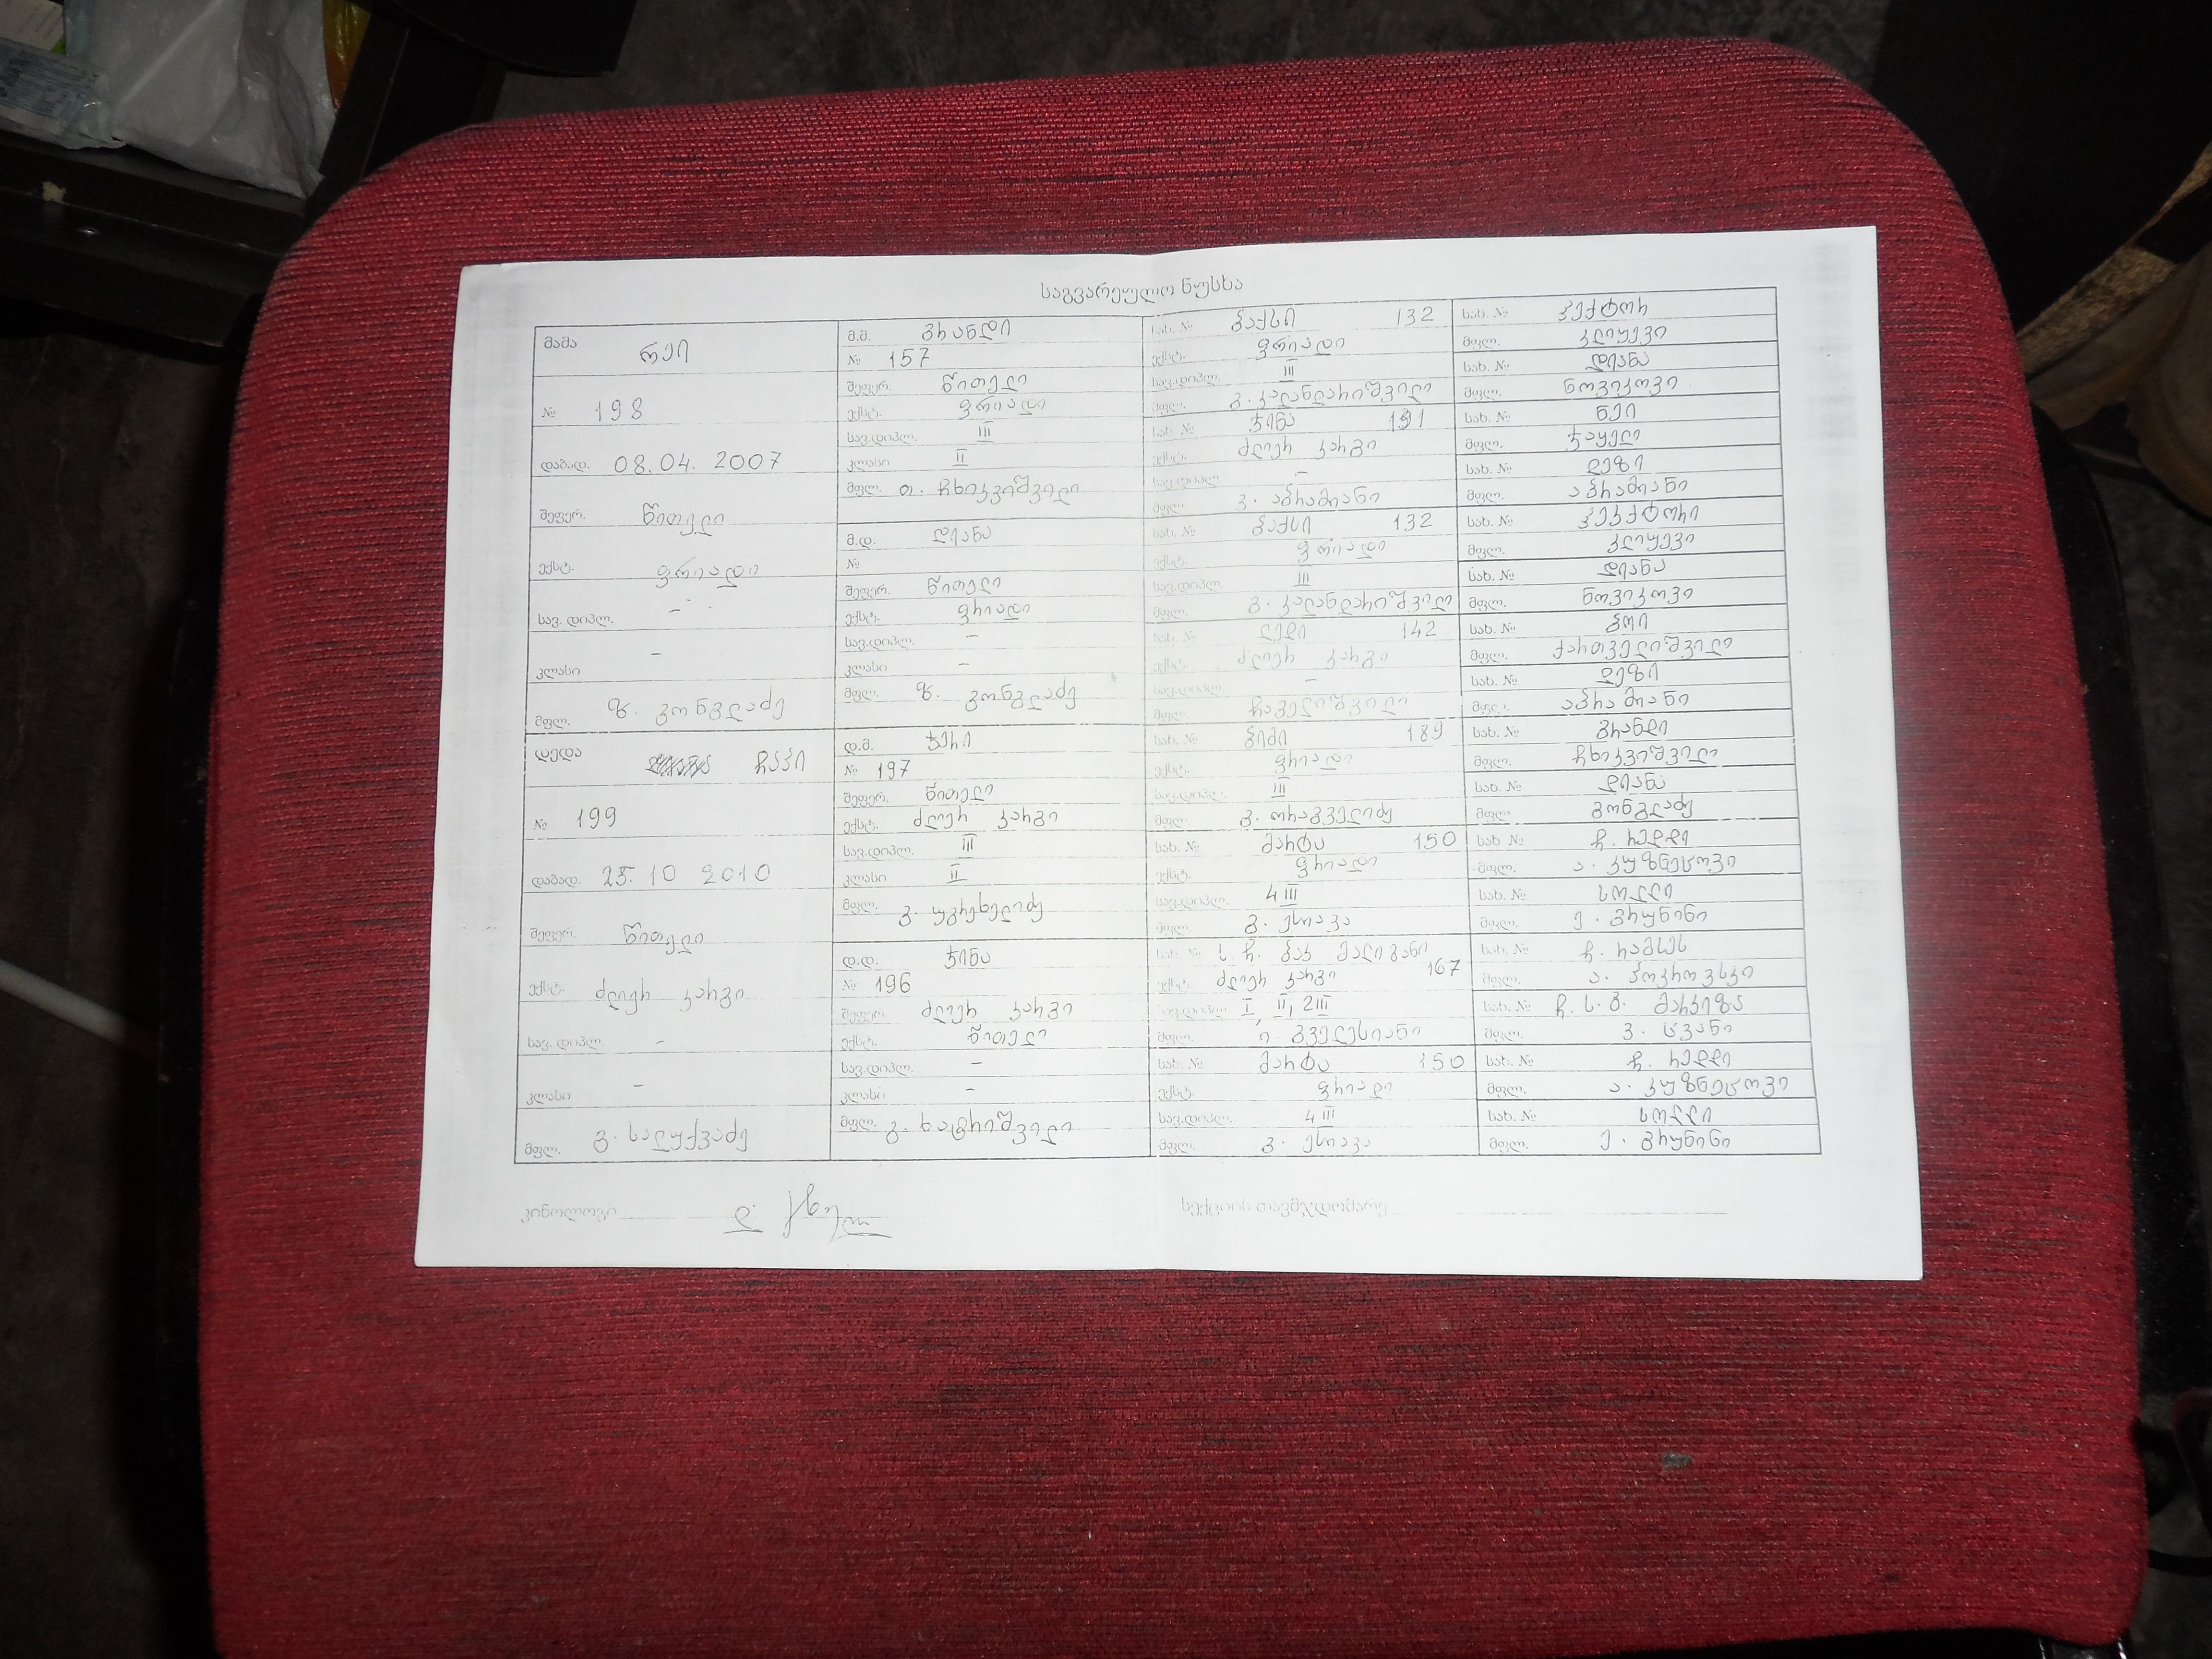 საგვარეულო ნუსხა
მამა რეი
№ 198
დაბად. 08.04. 2007
შეფერ. წითელი
ექსტ. ფრიადი
სავ. დიპლ. –
კლასი –
მფლ. ზ. გონგლაძე
დედა ჩაპი
№ 199
დაბად. 25.10 2010
შეფერ. წითელი
ექსტ. ძლიერ კარგი
სავ. დიპლ. –
კლასი –
მფლ. გ. სალუქვაძე
მ.მ. გრანდი
№ 157
შეფერ. წითელი
ექსტ. ფრიადი
სავ.დიპლ. III
კლასი II
მფლ. თ. ჩხიკვიშვილი
მ.დ. დიანა
№
შეფერ. წითელი
ექსტ. ფრიადი
სავ.დიპლ. –
კლასი –
მფლ. ზ. გონგლაძე
დ.მ. ჯერი
№ 197
შეფერ. წითელი
ექსტ. ძლიერ კარგი
სავ.დიპლ. III
კლასი II
მფლ. გ. უგრეხელიძე
დ.დ. ჯინა
№ 196
შეფერ. ძლიერ კარგი
ექსტ. წითელი
სავ.დიპლ. –
კლასი –
მფლ. გ. ხატრიშვილი
სახ. № მაქსი 132
ექსტ. ფრიადი
სავ.დიპლ. III
მფლ. გ. კალანდარიშვილი
სახ. № ჯინა 191
ექსტ. ძლიერ კარგი
სავ.დიპლ. –
მფლ. ვ. აბრამიანი
სახ. № მაქსი 132
ექსტ. ფრიადი
სავ.დიპლ. III
მფლ. გ. კალანდარიშვილ
სახ. № ლედი 142
ექსტ. ძლიერ კარგი
სავ.დიპლ. –
მფლ.
სახ. № ჯიმი 189
ექსტ. ფრიადი
სავ.დიპლ. III
მფლ. გ. ორაგველიძე
სახ. № მარტა 150
ექსტ. ფრიადი
სავ.დიპლ. 4 III
მფლ. გ. ესიავა
სახ. № ს. ჩ. მაკ მალიგანი
ექსტ. ძლიერ კარგი 167
სავ.დიპლ. I, II, 2III
მფლ. ი. გველესიანი
სახ. № მარტა 150
ექსტ. ფრიადი
სავ.დიპლ. 4 III
მფლ. გ. ესიავა
სახ. № ვექტორ
მფლ. კლიუევი
სახ. № დიანა
მფლ. ნოვიკოვი
სახ. № რეი
მფლ. ჯაყელი
სახ. № ლეზი
მფლ. აბრამიანი
სახ. № ვექტორი
მფლ. კლიუევი
სახ. № დიანა
მფლ. ნოვიკოვი
სახ. № ბოი
მფლ. ქართველიშვილი
სახ. № ლეზი
მფლ. აბრამიანი
სახ. № გრანდი
მფლ. ჩხიკვიშვილი
სახ. № დიანა
მფლ. გონგლაძე
სახ № ჩ. რედდი
მფლ. ა. კუზნეცოვი
სახ. № სოლლი
მფლ. ე. გრუნინი
სახ. № ჩ. რამსეს
მფლ. ა. პოკროვსკი
სახ. № ჩ. ს. გ. მარკიზა
მფლ. ვ. სვანი
სახ. № ჩ. რედდი
მფლ. ა. კუზნეცოვი
სახ. № სოლლი
მფლ. ე. გრუნინი
კინოლოგი
სექციის თავმჯდომარე